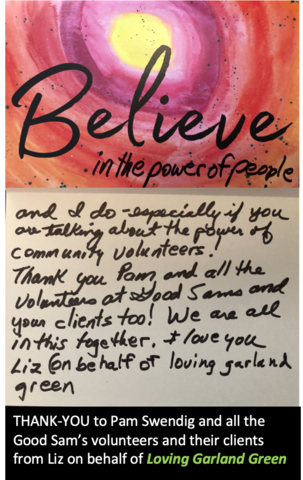 Believe
in the power of people
and I do - especially if you
are talking about the power of
community volunteers!
Thank you Pam, and all the
volunteers at Good Sams and
your clients too! We are all
in this together. I love you
Liz (on behalf of loving garland
green
THANK-YOU to Pam Swendig and all the
Good Sam's volunteers and their clients
from Liz on behalf of Loving Garland Green